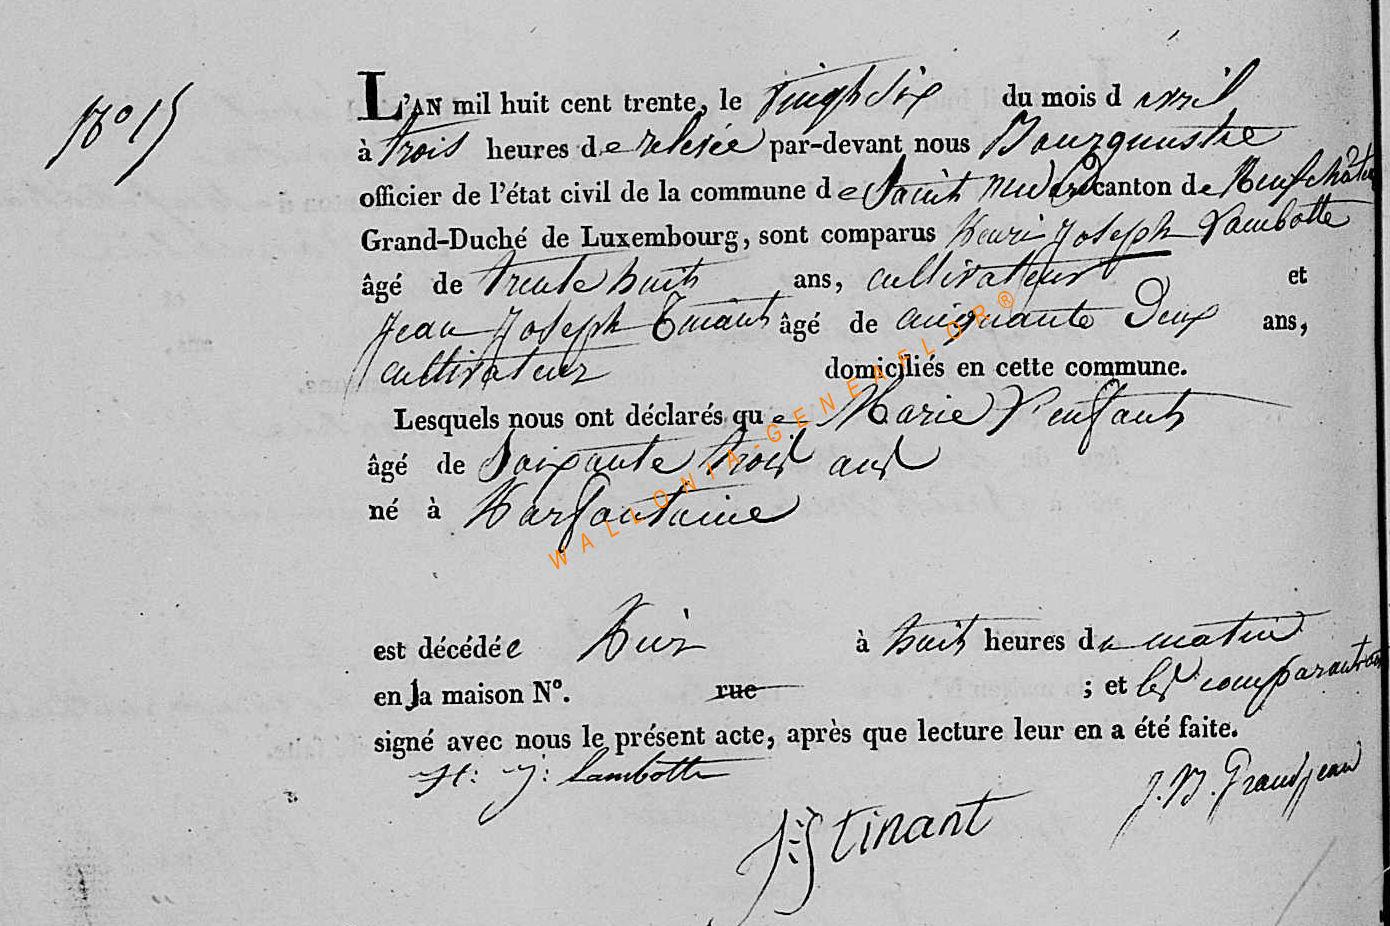 N° 15
L'AN mil huit cent trente, le vingt six du mois d avril
à trois heures de relevée par-devant nous Bourguestre
officier de l'état civil de la commune de Saint Médard canton de Neufchâteau
Grand-Duché de Luxembourg, sont comparus Henri Joseph Lambotte
âgé de trente huit ans, cultivateur et
Jean Joseph Tinant âgé de cinquante Deux ans,
cultivateur domiciliés en cette commune.
Lesquels nous ont déclarés que Marie Lenfant
âgé de Soixante trois ans
né à Harfontaine
est décédée hier à huit heures du matin
en la maison N°. rue ; et les comparants ont
signé avec nous le présent acte, après que lecture leur en a été faite.
H: J: Lambotte
J. B. Grandjean
J: J Tinant
WALLONIA-GENEAFLOR®